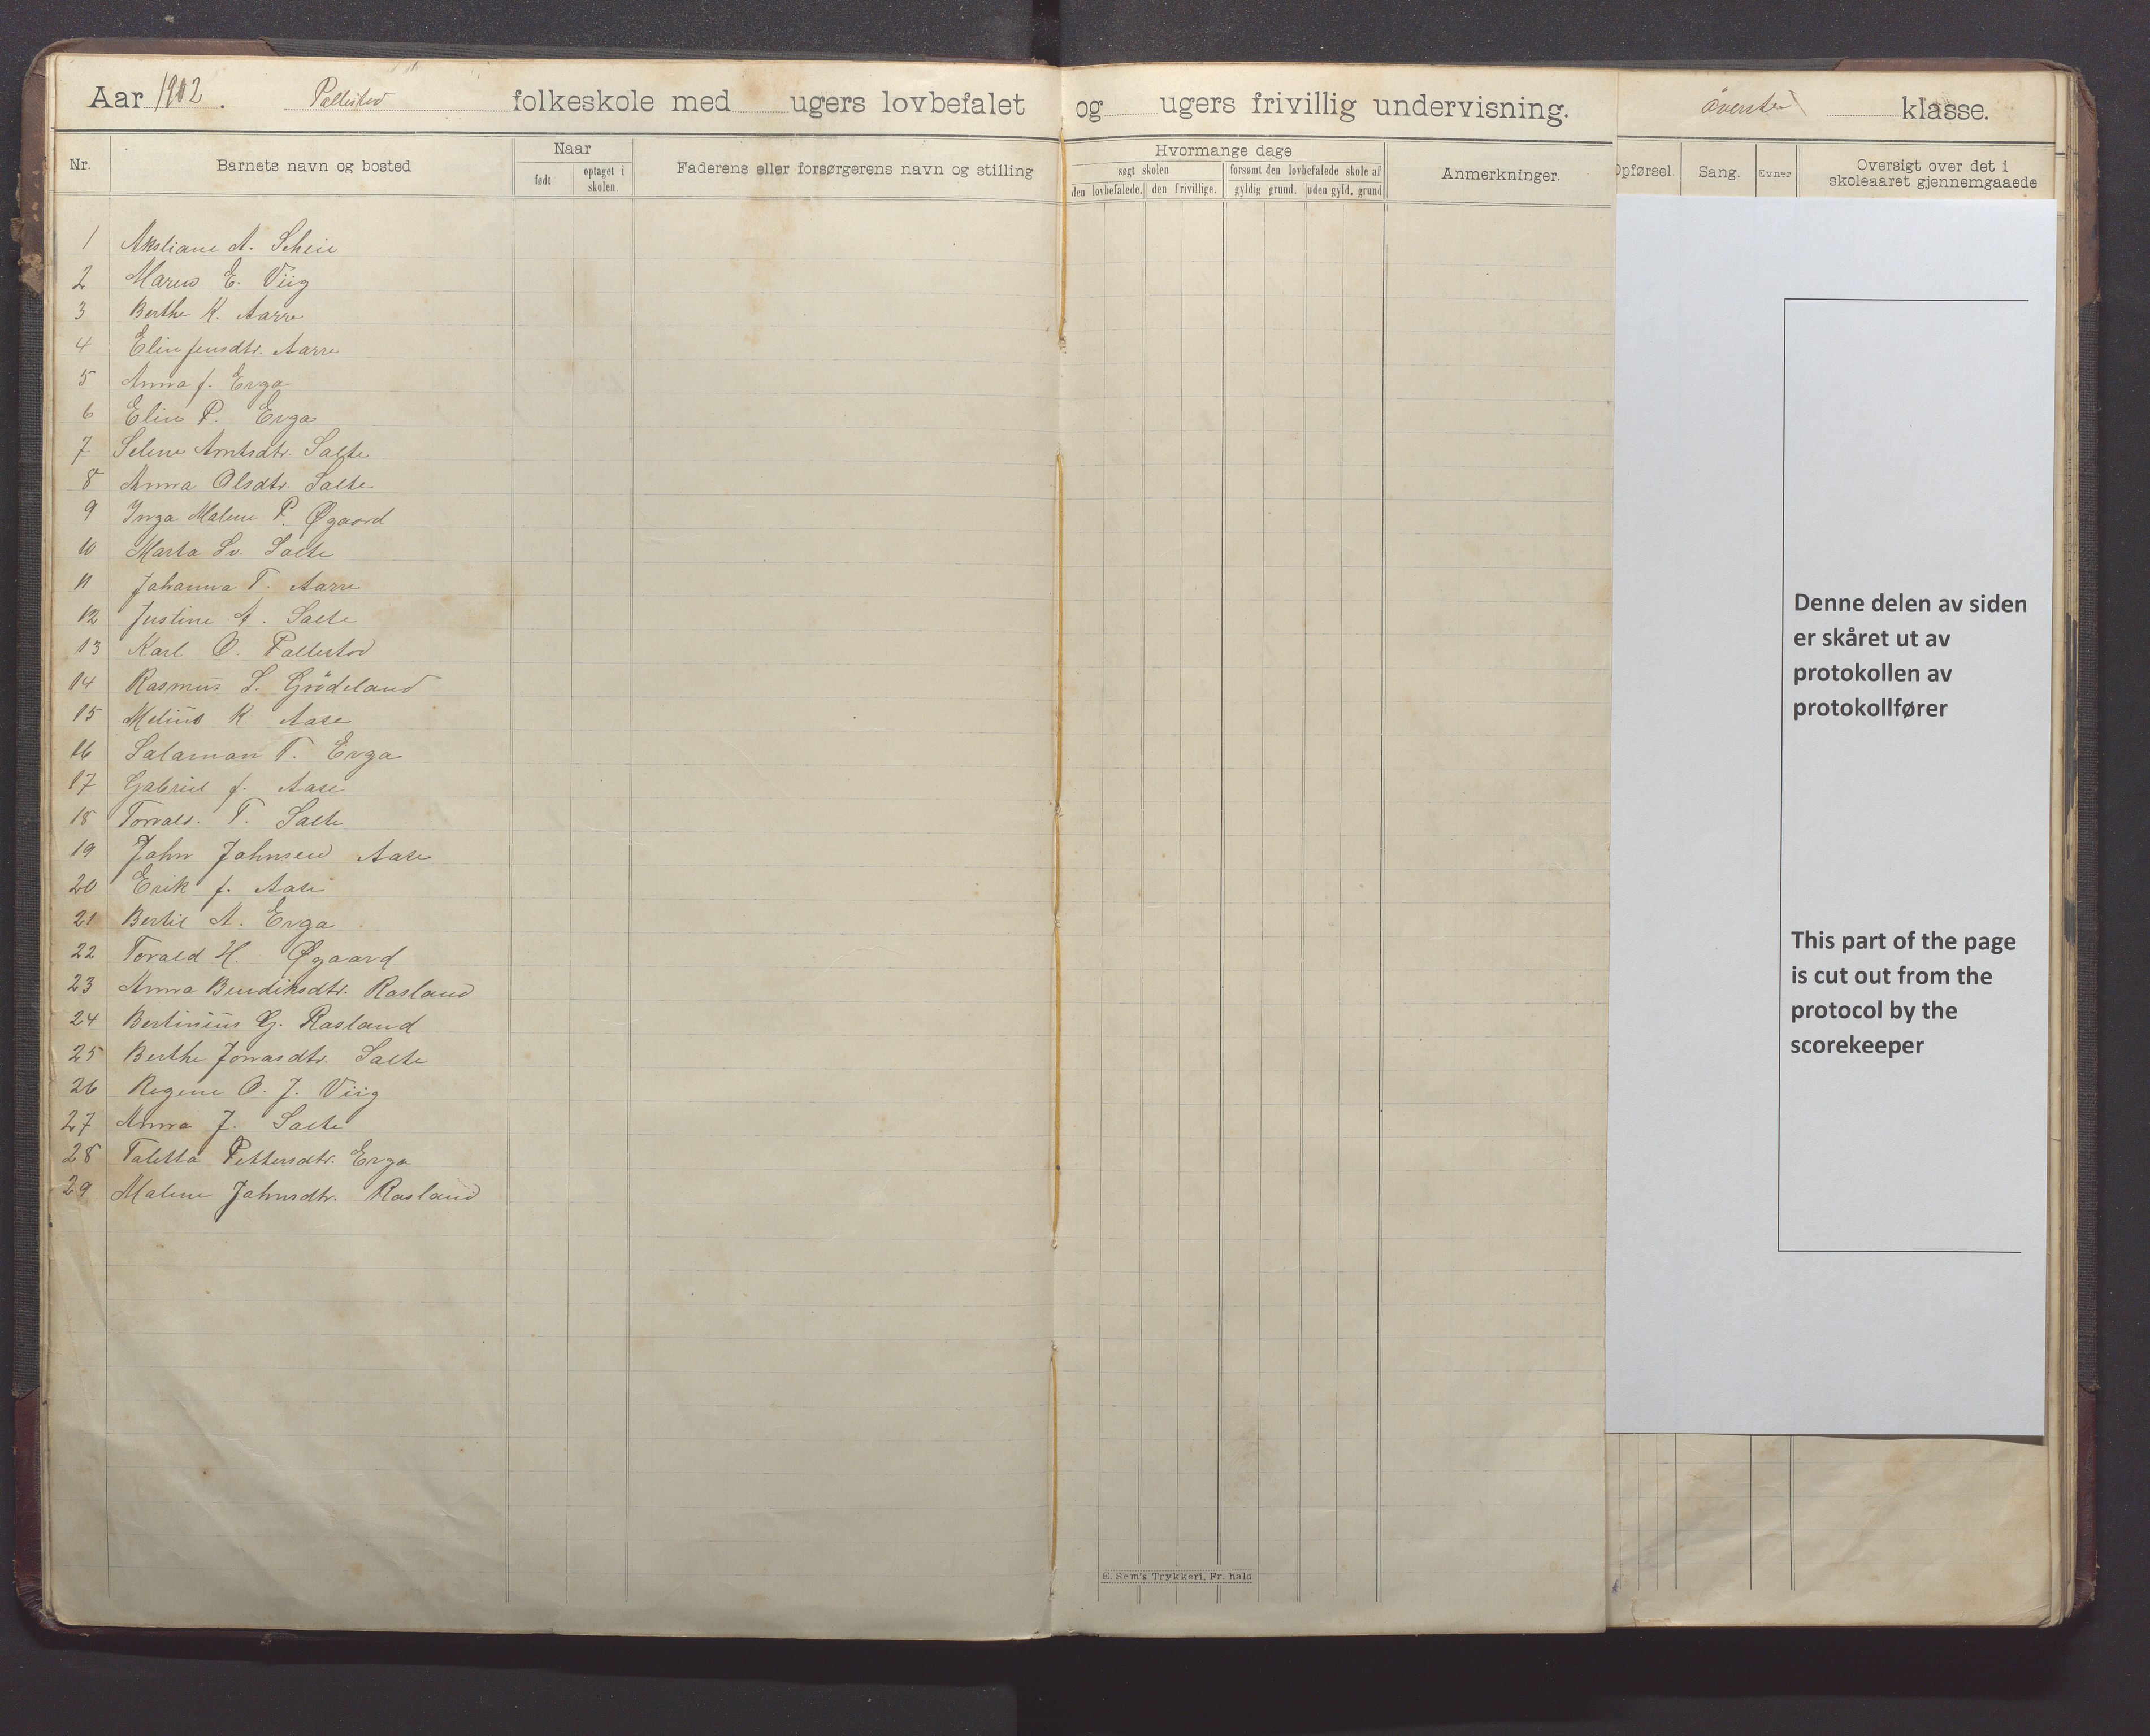 Aar 1902. Pallestad folkeskole med ugers lovbefalet og ugers frivillig undervisning. överste klasse.
Nr. Barnets navn og bosted Naar født optaget i skolen. Faderens eller forsørgerens navn og stilling
Hvormange dage
søgt skolen forsømt den lovbefalede skole af
den lovbefalede. den frivillige. gyldig grund. uden gyld. grund
Anmerkninger.
Opførsel Sang. Evner Oversigt over det i skoleaaret gjennemgaaede
1 Aksliane A. Scheie
2 Maren E. Viig
3 Berthe K. Aarre
4 Elin Jensdtr. Aarre
5 Anna J. Erga
6 Elin P. Erga
7 Selene Arntsdtr. Salte
8 Anna Olsdtr. Salte
9 Inga Malene P. Øgaard
10 Marta Sv. Salte
11 Johanna T. Aarre
12 Justine A. Salte
13 Karl O. Pallestad
14 Rasmus S. Grödeland
15 Melius K. Aase
16 Salaman T. Erga
17 Gabriel J. Aase
18 Torvald. T. Salte
19 John Johnsen Aase
20 Erik J. Aase
21 Bertil A. Erga
22 Torald H. Øgaard
23 Anna Bendiksdtr. Rasland
24 Bertinius G. Rasland
25 Berthe Jonasdtr. Salte
26 Regine O. J. Viig
27 Anna J. Salte
28 Taletta Pettersdtr. Erga
29 Malene Johnsdtr. Rasland
E. Sem's Trykkeri, Fr. hald
Denne delen av siden
er skåret ut av
protokollen av
protokollfører
This part of the page
is cut out from the
protocol by the
scorekeeper